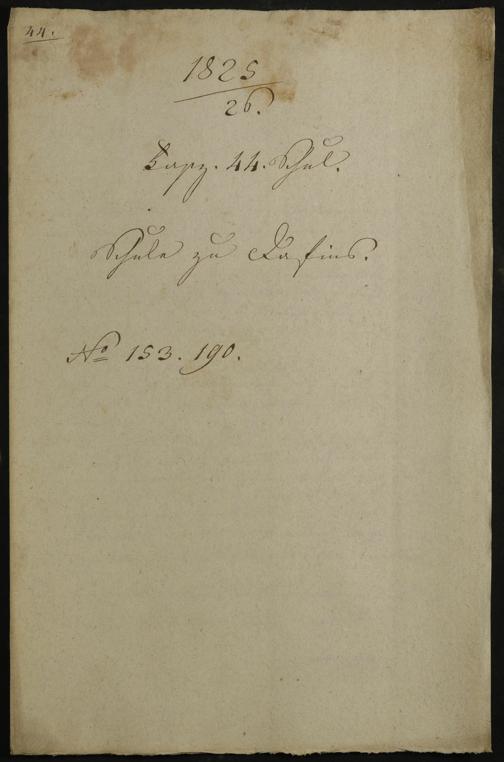 44.
1825
26.
44. Schul.
Schule zu
No 153. 190.